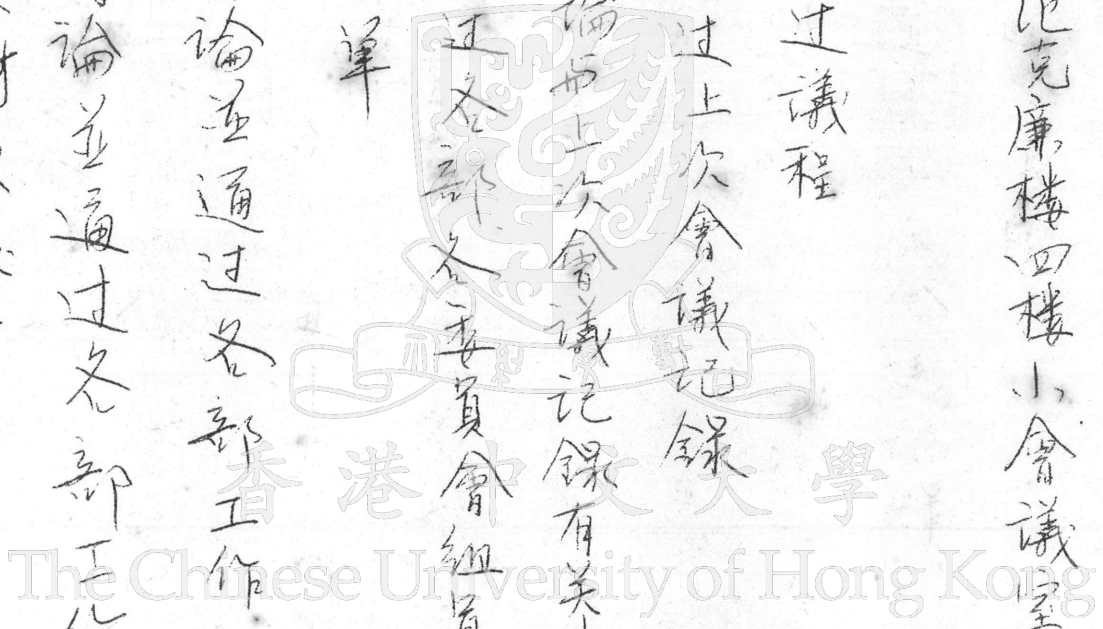 范克廉楼四楼小會議室
过議程
过上次會議记錄
論与上次會議记錄有关
过各部各委員會组員
单
論並通过各部工作
論並通过各部工作
香港中文大學
The Chinese University of Hong Kong